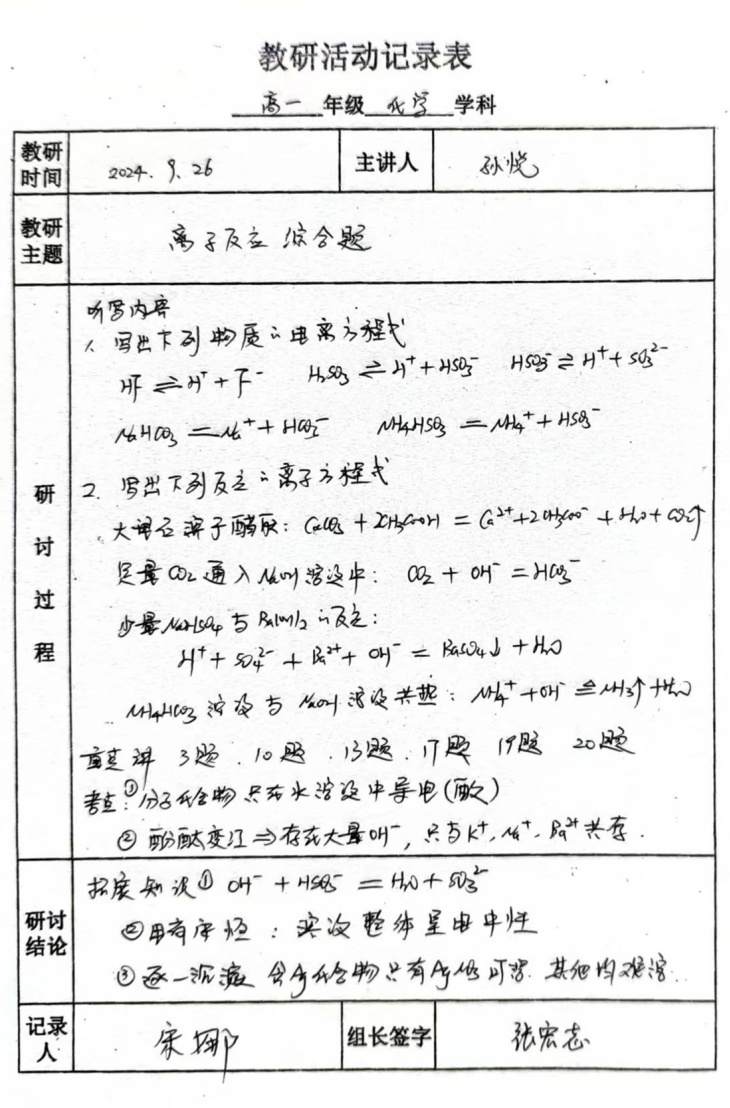 教研活动记录表
高一 年级 化学 学科
教研时间 2024.9.26 主讲人 孙悦
教研主题 离子反应 综合题
研讨过程
听写内容
1. 写出下列物质的电离方程式
HF ⇌ H⁺ + F⁻ H₂SO₃ ⇌ H⁺ + HSO₃⁻ HSO₃⁻ ⇌ H⁺ + SO₃²⁻
NaHCO₃ = Na⁺ + HCO₃⁻ NH₄HSO₃ = NH₄⁺ + HSO₃⁻
2. 写出下列反应的离子方程式
大理石溶于醋酸: CaCO₃ + 2CH₃COOH = Ca²⁺ + 2CH₃COO⁻ + H₂O + CO₂↑
足量CO₂通入NaOH溶液中: CO₂ + OH⁻ = HCO₃⁻
少量NaHSO₄与Ba(OH)₂的反应:
H⁺ + SO₄²⁻ + Ba²⁺ + OH⁻ = BaSO₄↓ + H₂O
NH₄HCO₃溶液与NaOH溶液共热: NH₄⁺ + OH⁻ ≜ NH₃↑ + H₂O
重点讲 3题. 10题. 13题. 17题 19题 20题
考点: ①分子化合物只在水溶液中导电(酸)
②酚酞变红⇒存在大量OH⁻, 只与K⁺, Na⁺, Ba²⁺共存.
研讨结论
拓展知识① OH⁻ + HSO₃⁻ = H₂O + SO₃²⁻
②电荷守恒: 溶液整体呈电中性
③逐一沉淀 含Ag化合物只有AgNO₃可溶. 其他均难溶.
记录人 宋娜 组长签字 张宏志